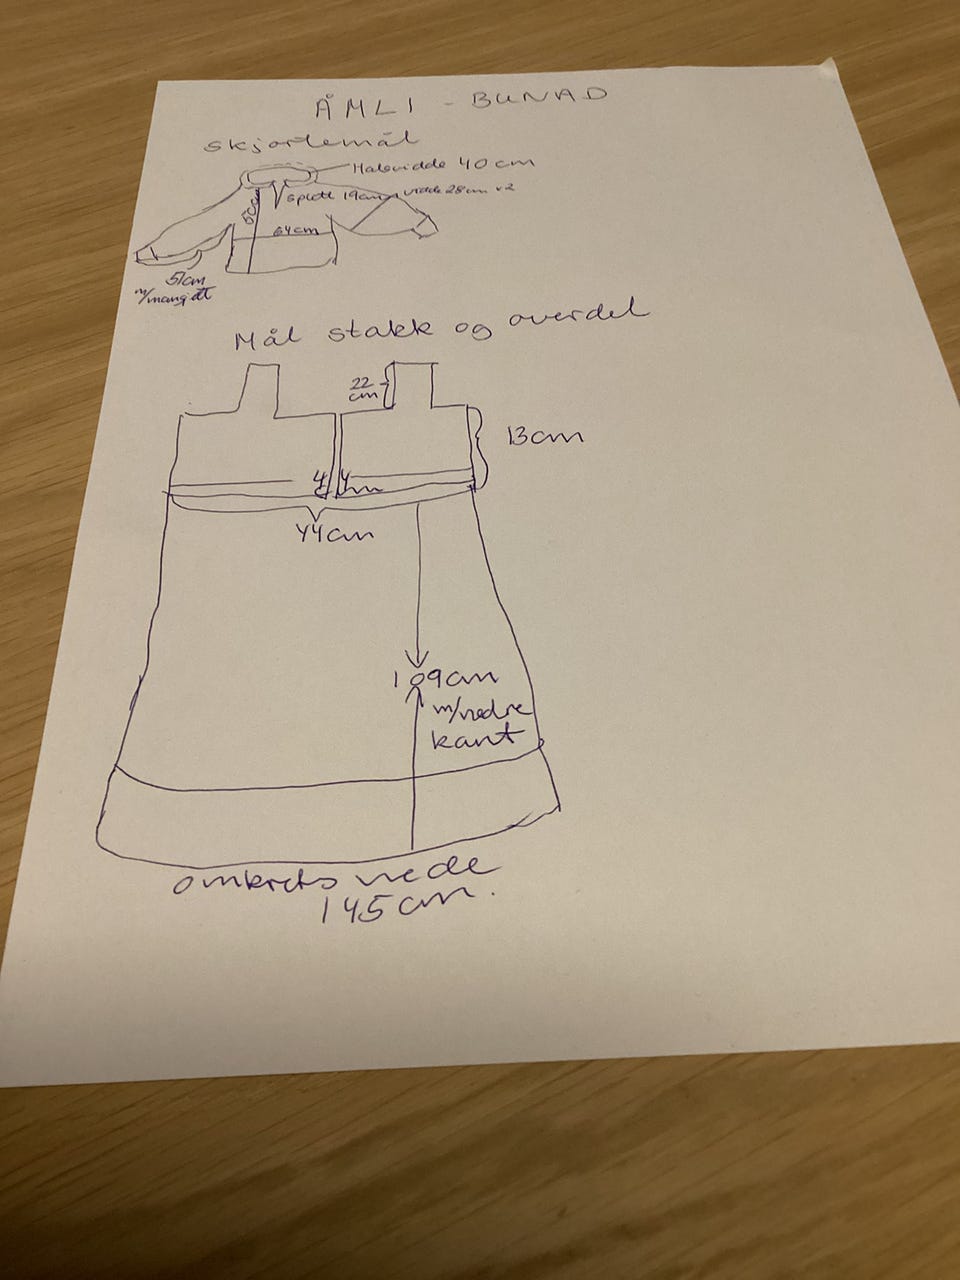 ÅMLI - BUNAD
skjortemål
Halsvidde 40 cm
splitt 19cm
vidde 28cm x2
64cm
51cm
Mål stakk og overdel
22
cm
13cm
44cm
109cm
m/nedre
kant
omkrets nede
145cm.